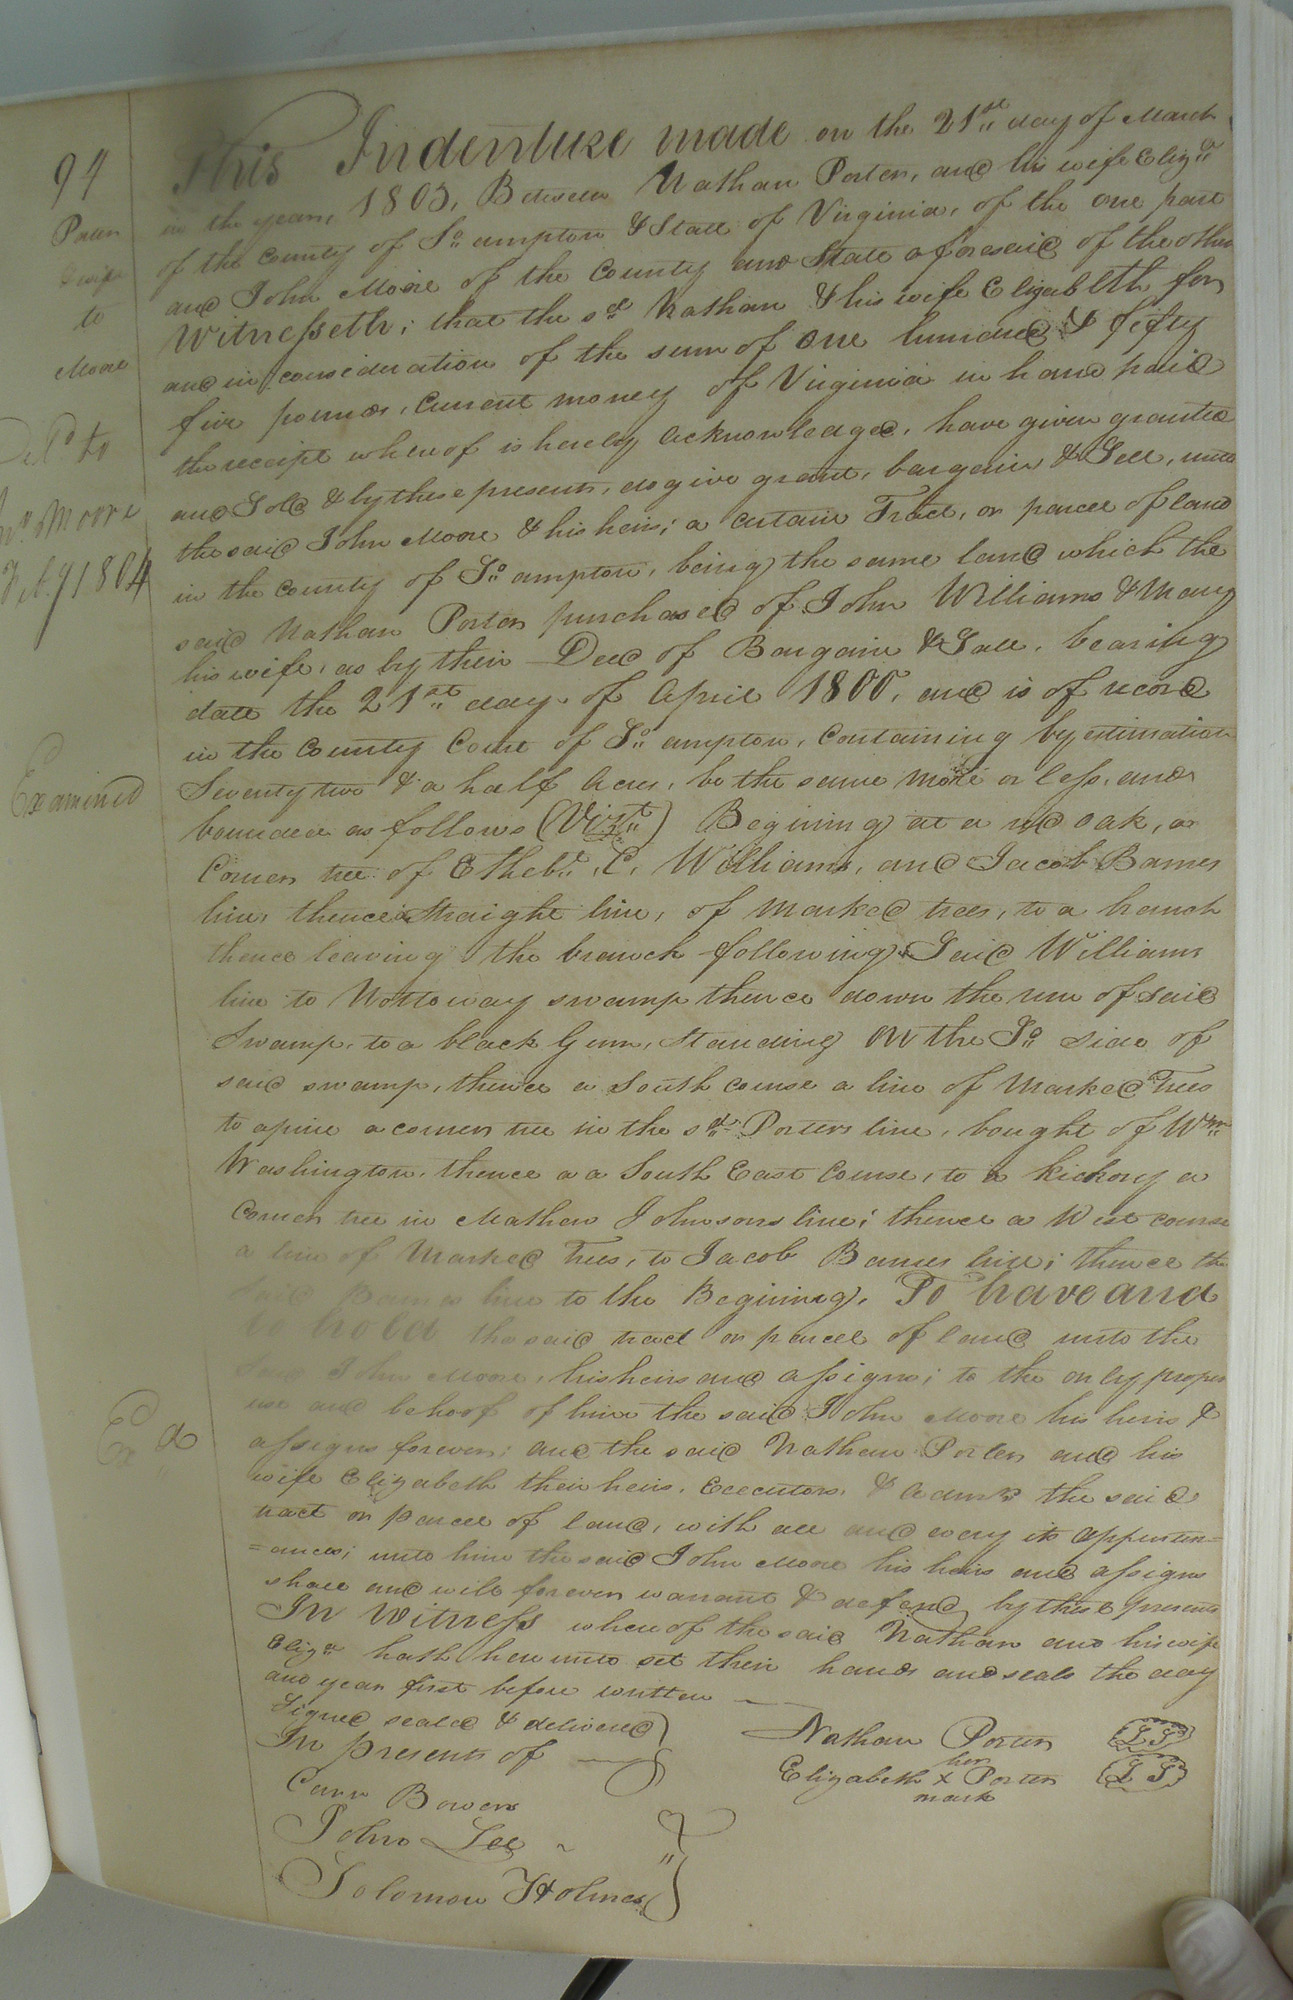 94
Porter
& wife
to
Moore
Del.d to
Jno. Moore
Feb.y 1804
Examined
Ex d
This Indenture made on the 21st day of March
in the year, 1803, Between Nathan Porter, and his wife Eliz.a
of the County of So. ampton & State of Virginia, of the one part
and John Moore of the County and State aforesaid of the other
Witnesseth; that the sd Nathan & his wife Elizabeth for
and in consideration of the sum of one hundred & fifty
five pounds, Current money of Virginia in hand paid
the receipt whereof is hereby acknowledged, have given granted
and Sold & by these presents, do give grant, bargain & Sell, unto
the said John Moore & his heirs; a certain Tract, or parcel of land
in the county of So. ampton, being the same land which the
said Nathan Porter purchased of John Williams & Mary
his wife, as by their Deed of Bargain & Sale, bearing
date the 21st day of April 1800, and is of record
in the County Court of So. ampton, Containing by estimation
Seventy two & a half Acres, be the same more or less, and
bounded as follows (Vizt) Begining at a red oak, a
Corner tree of Ethelb.d C, Williams, and Jacob Barnes
line, thence a Straight line, of marked trees, to a branch
thence leaving the branch following Said Williams
line to Nottoway swamp thence down the run of said
Swamp, to a black Gum, Standing on the So. side of
said swamp, thence a South course a line of Marked Trees
to a pine a corner tree in the sd. Porters line, bought of Wm.
Washington, thence a a South East Course, to a hickory a
Corner tree in Mathew Johnsons line; thence a West course
a line of Marked Trees, to Jacob Barnes line; thence the
said Barnes line to the Begining, To have and
to hold the said tract or parcel of land unto the
said John Moore, his heirs and assigns; to the only proper
use and behoof of him the said John Moore his heirs &
assigns forever; and the said Nathan Porter and his
wife Elizabeth their heirs, Executors, & Admrs the said
tract or parcel of land, with all and every its appurten=
=ances; unto him the said John Moore his heirs and assigns
shall and will forever warrant & defend by these presents
In Witness whereof the said Nathan and his wife
Eliz.a hath hereunto set their hands and seals the day
and year first before written
Signed sealed & delivered
In presents of
Nathan Porter LS
her
Elizabeth X Porter LS
mark
Carr Bowers
John Lee
Solomon Holmes